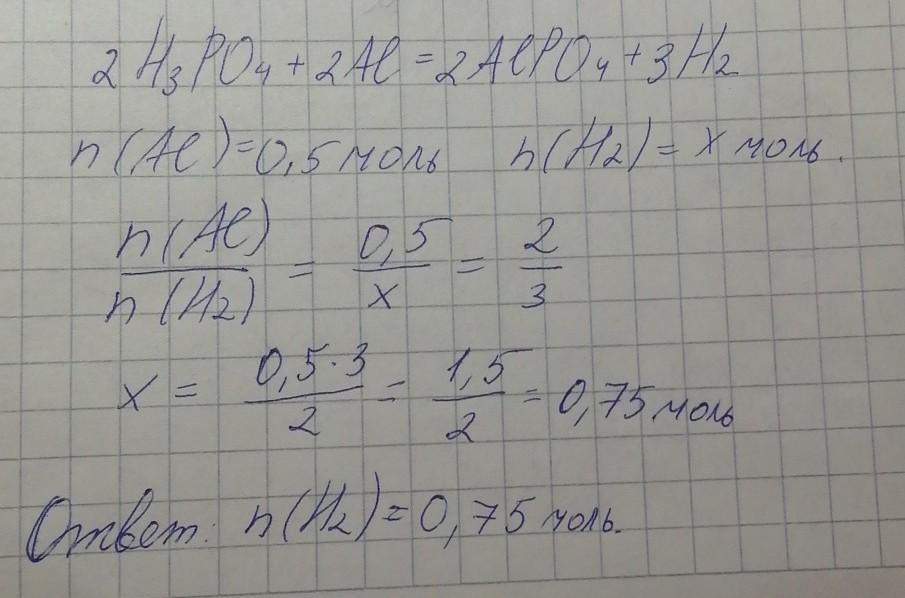 2H₃PO₄ + 2Al = 2AlPO₄ + 3H₂
n(Al) = 0,5 моль n(H₂) = x моль.
n(Al)/n(H₂) = 0,5/x = 2/3
x = 0,5·3/2 = 1,5/2 = 0,75 моль
Ответ: n(H₂) = 0,75 моль.